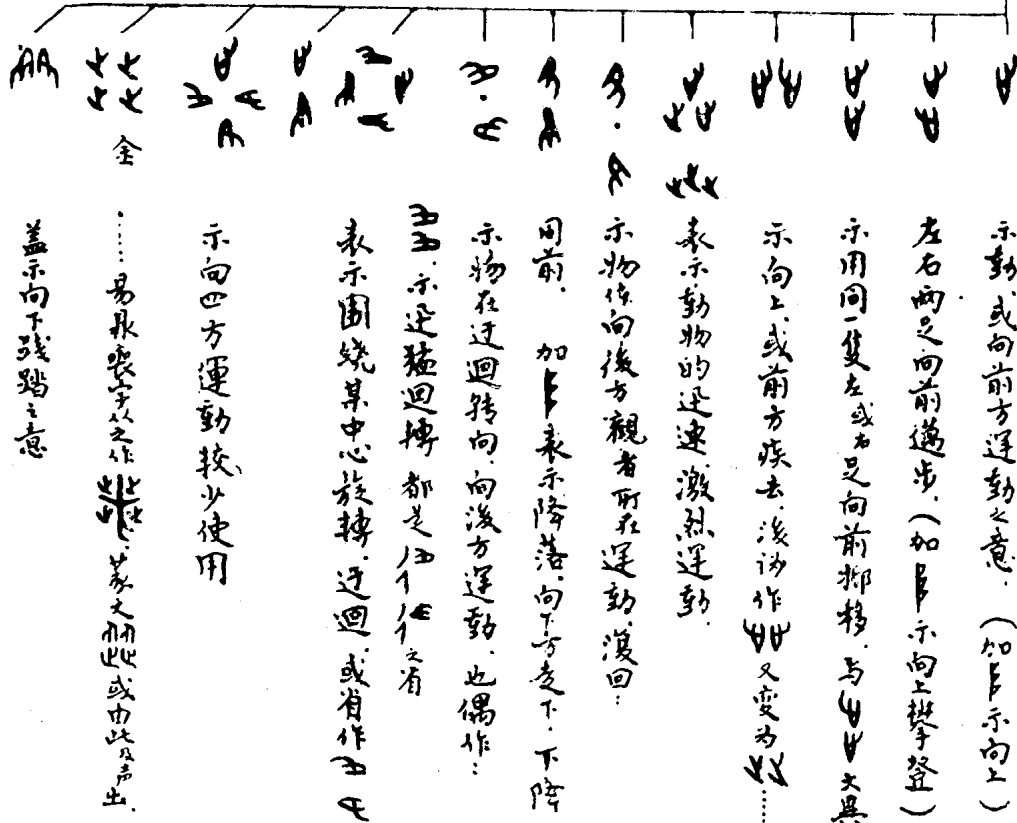 示動或向前方運動之意.（加阝示向上）
左右兩足向前邁步.（加阝示向上攀登）
示用同一隻左或右足向前挪移.与 大異
示向上或前方疾去.後訛作 又变为……
表示動物的迅速.激烈運動.
示物体向後方觀者所在運動.復回：
同前. 加阝表示降落.向下方走下.下降
示物在迂迴转向.向後方運動.也偶作：
示迅猛迴轉 都是 之省
表示圍繞某中心旋轉.迂迴.或省作
示向四方運動較少使用
金……易鼎 字从之作 篆文 或由此及声出.
蓋示向下践踏之意